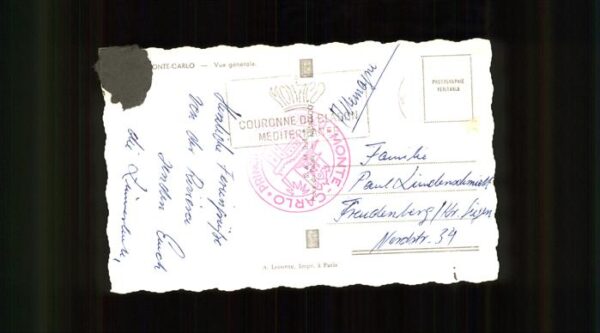 ONTE-CARLO — Vue générale.
MONACO
COURONNE DU BLASON
MEDITERRANEE
Allemagne
PHOTOGRAPHIE
VERITABLE
MONTE-CARLO
Herzliche Feriengrüße
von der Riviera
senden Euch
die
Familie
Paul Lindenschmidt
Freudenberg/Kr. Siegen
Nordstr. 34
A. Leconte, Impr. à Paris